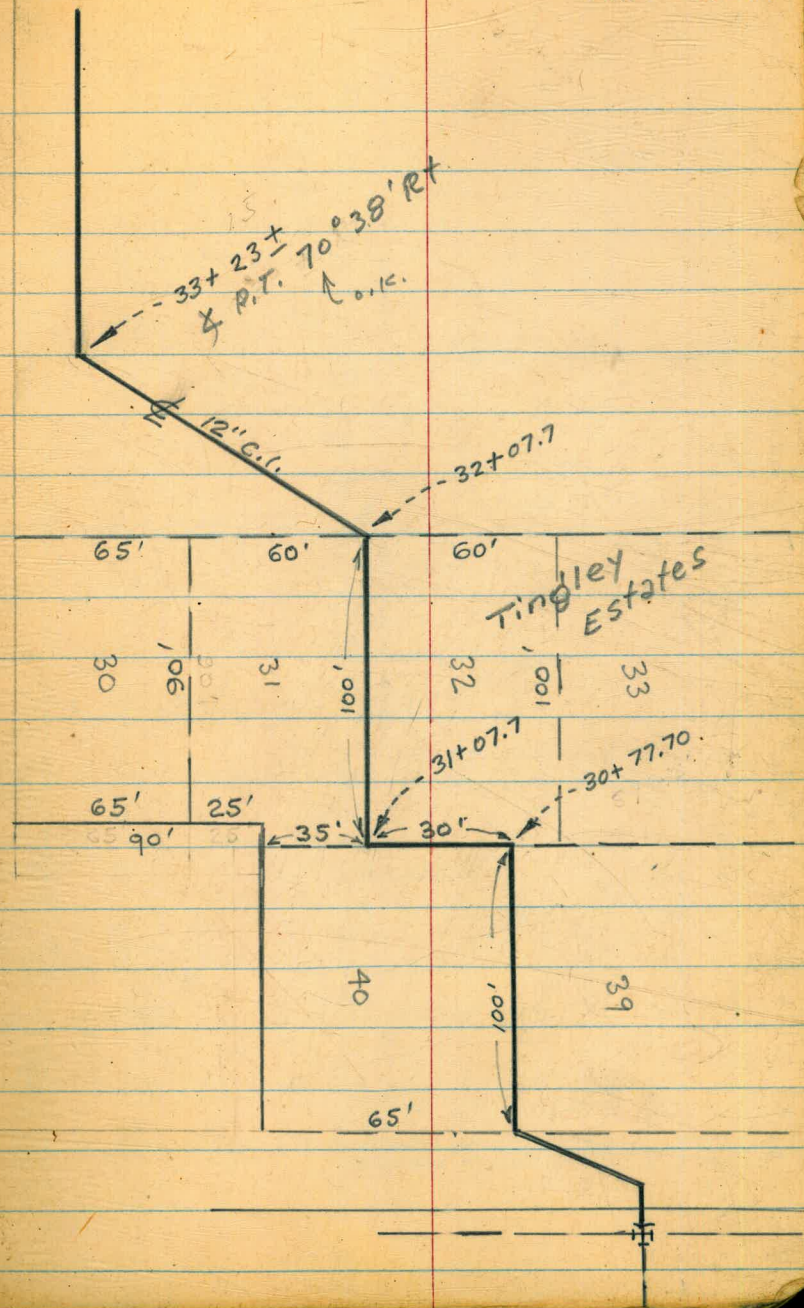 33+ 23±
∡ P.T. 70°38' Rt
↑ o.k.
12" C.I.
32+07.7
65'
60'
60'
Tingley
Estates
30
90'
31
100'
32
100'
33
31+07.7
30+77.70
65'
25'
90'
35'
30'
40
100'
39
65'